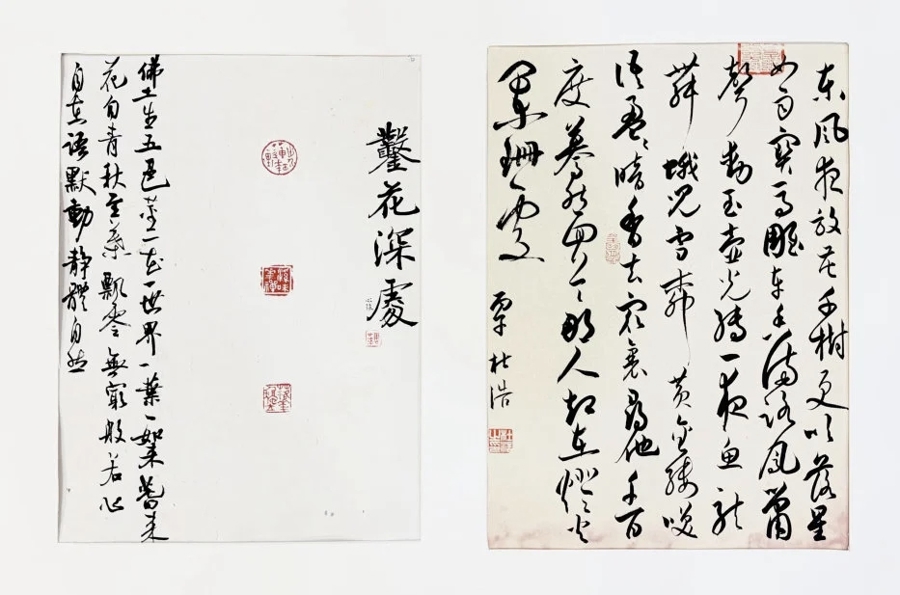 东风夜放花千樹更吹落星
如雨寶馬雕车香满路風簫
聲動玉壺光转一夜鱼龙
舞蛾儿雪柳黄金缕笑
语盈盈暗香去众裏尋他千百
度蓦然回首那人却在燈火
闌珊处
杜浩
鑿花深處
佛土生五色莖一花一世界一葉一如來春来
花自青秋至葉飄零無窮般若心
自在語默動靜體自然